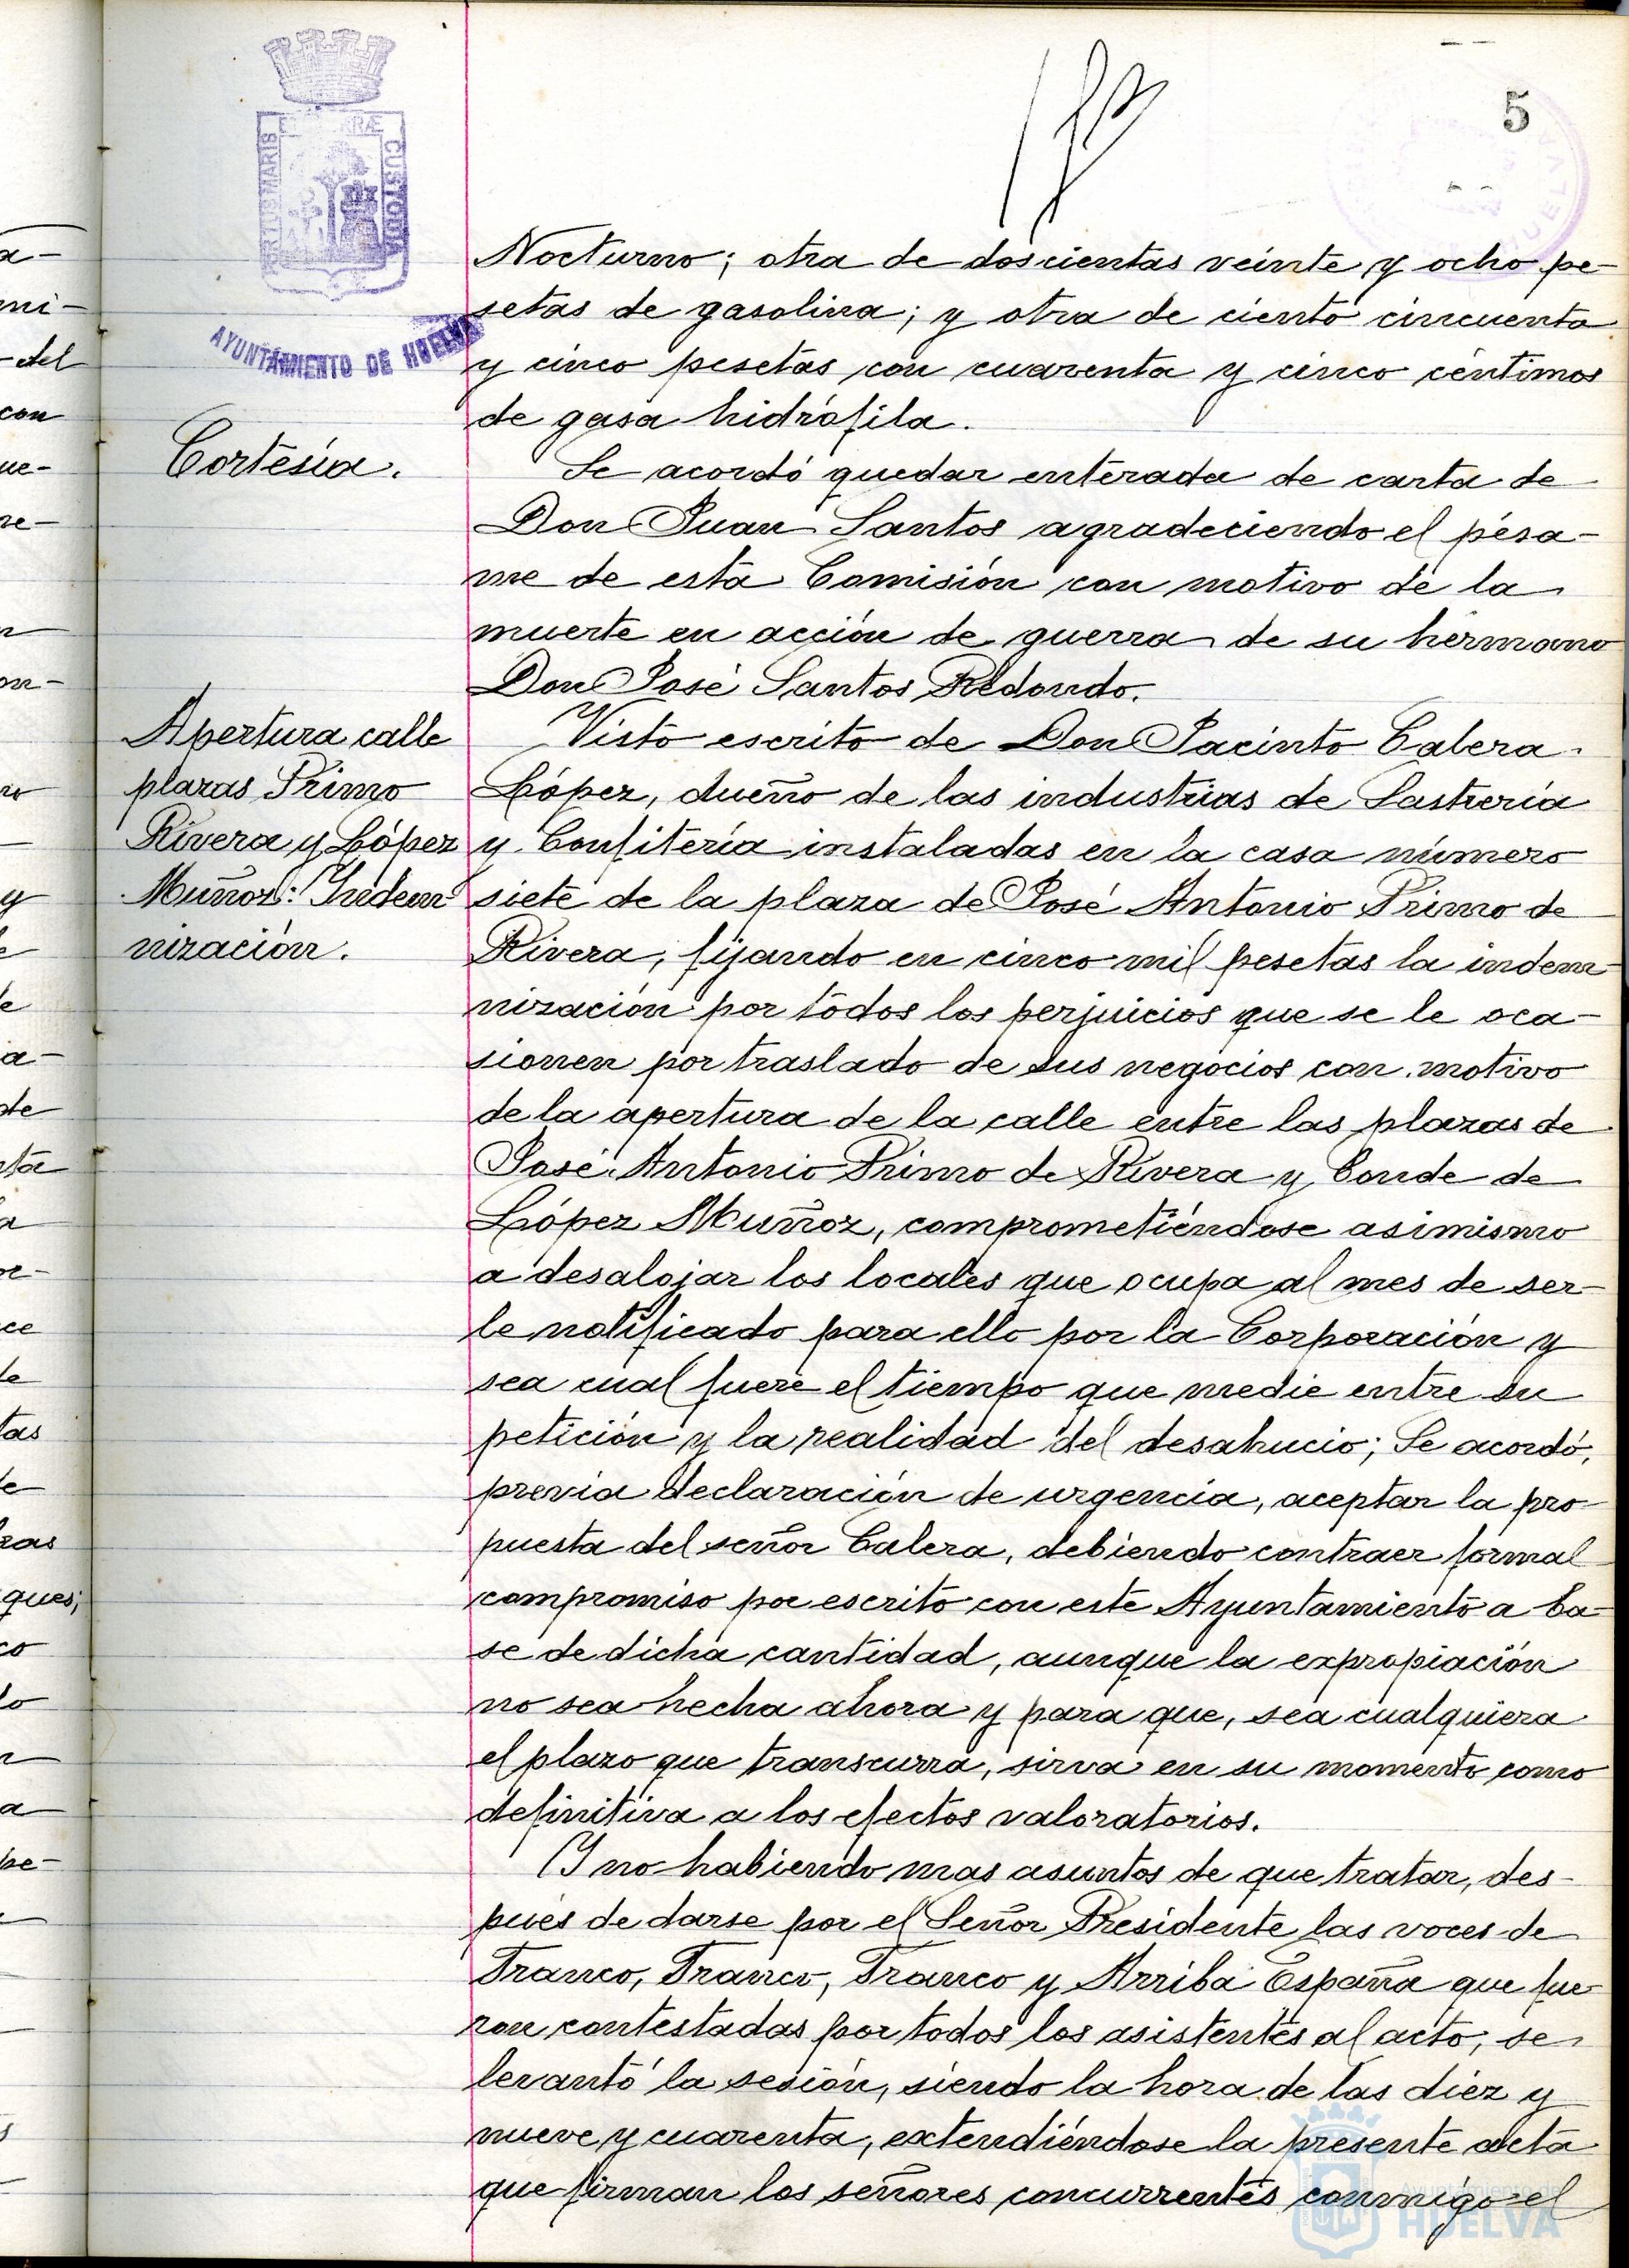 5
PORTUS MARIS ET TERRÆ CUSTODIA
AYUNTAMIENTO DE HUELVA
Nocturno; otra de doscientas veinte y ocho pe-
setas de gasolina; y otra de ciento cincuenta
y cinco pesetas con cuarenta y cinco céntimos
de gasa hidrófila.
Cortesía.
Se acordó quedar enterada de carta de
Don Juan Santos agradeciendo el pésa-
me de esta Comisión con motivo de la
muerte en acción de guerra de su hermano
Don José Santos Redondo.
Apertura calle
plazas Primo
Rivera y López
Muñoz: Indem
nización.
Visto escrito de Don Jacinto Calera
López, dueño de las industrias de Sastrería
y Confitería instaladas en la casa número
siete de la plaza de José Antonio Primo de
Rivera, fijando en cinco mil pesetas la indem
nización por todos los perjuicios que se le oca-
sionen por traslado de sus negocios con motivo
de la apertura de la calle entre las plazas de
José Antonio Primo de Rivera y Conde de
López Muñoz, comprometiéndose asimismo
a desalojar los locales que ocupa al mes de ser-
le notificado para ello por la Corporación y
sea cual fuere el tiempo que medie entre su
petición y la realidad del desahucio; Se acordó,
previa declaración de urgencia, aceptar la pro-
puesta del señor Calera, debiendo contraer formal
compromiso por escrito con este Ayuntamiento a ba-
se de dicha cantidad, aunque la expropiación
no sea hecha ahora y para que, sea cualquiera
el plazo que transcurra, sirva en su momento como
definitiva a los efectos valoratorios.
Y no habiendo mas asuntos de que tratar, des-
pués de darse por el Señor Presidente las voces de
Franco, Franco, Franco y Arriba España que fue-
ron contestadas por todos los asistentes al acto, se
levantó la sesión, siendo la hora de las diez y
nueve y cuarenta, extendiéndose la presente acta
que firman los señores concurrentes conmigo el
Ayuntamiento de
HUELVA